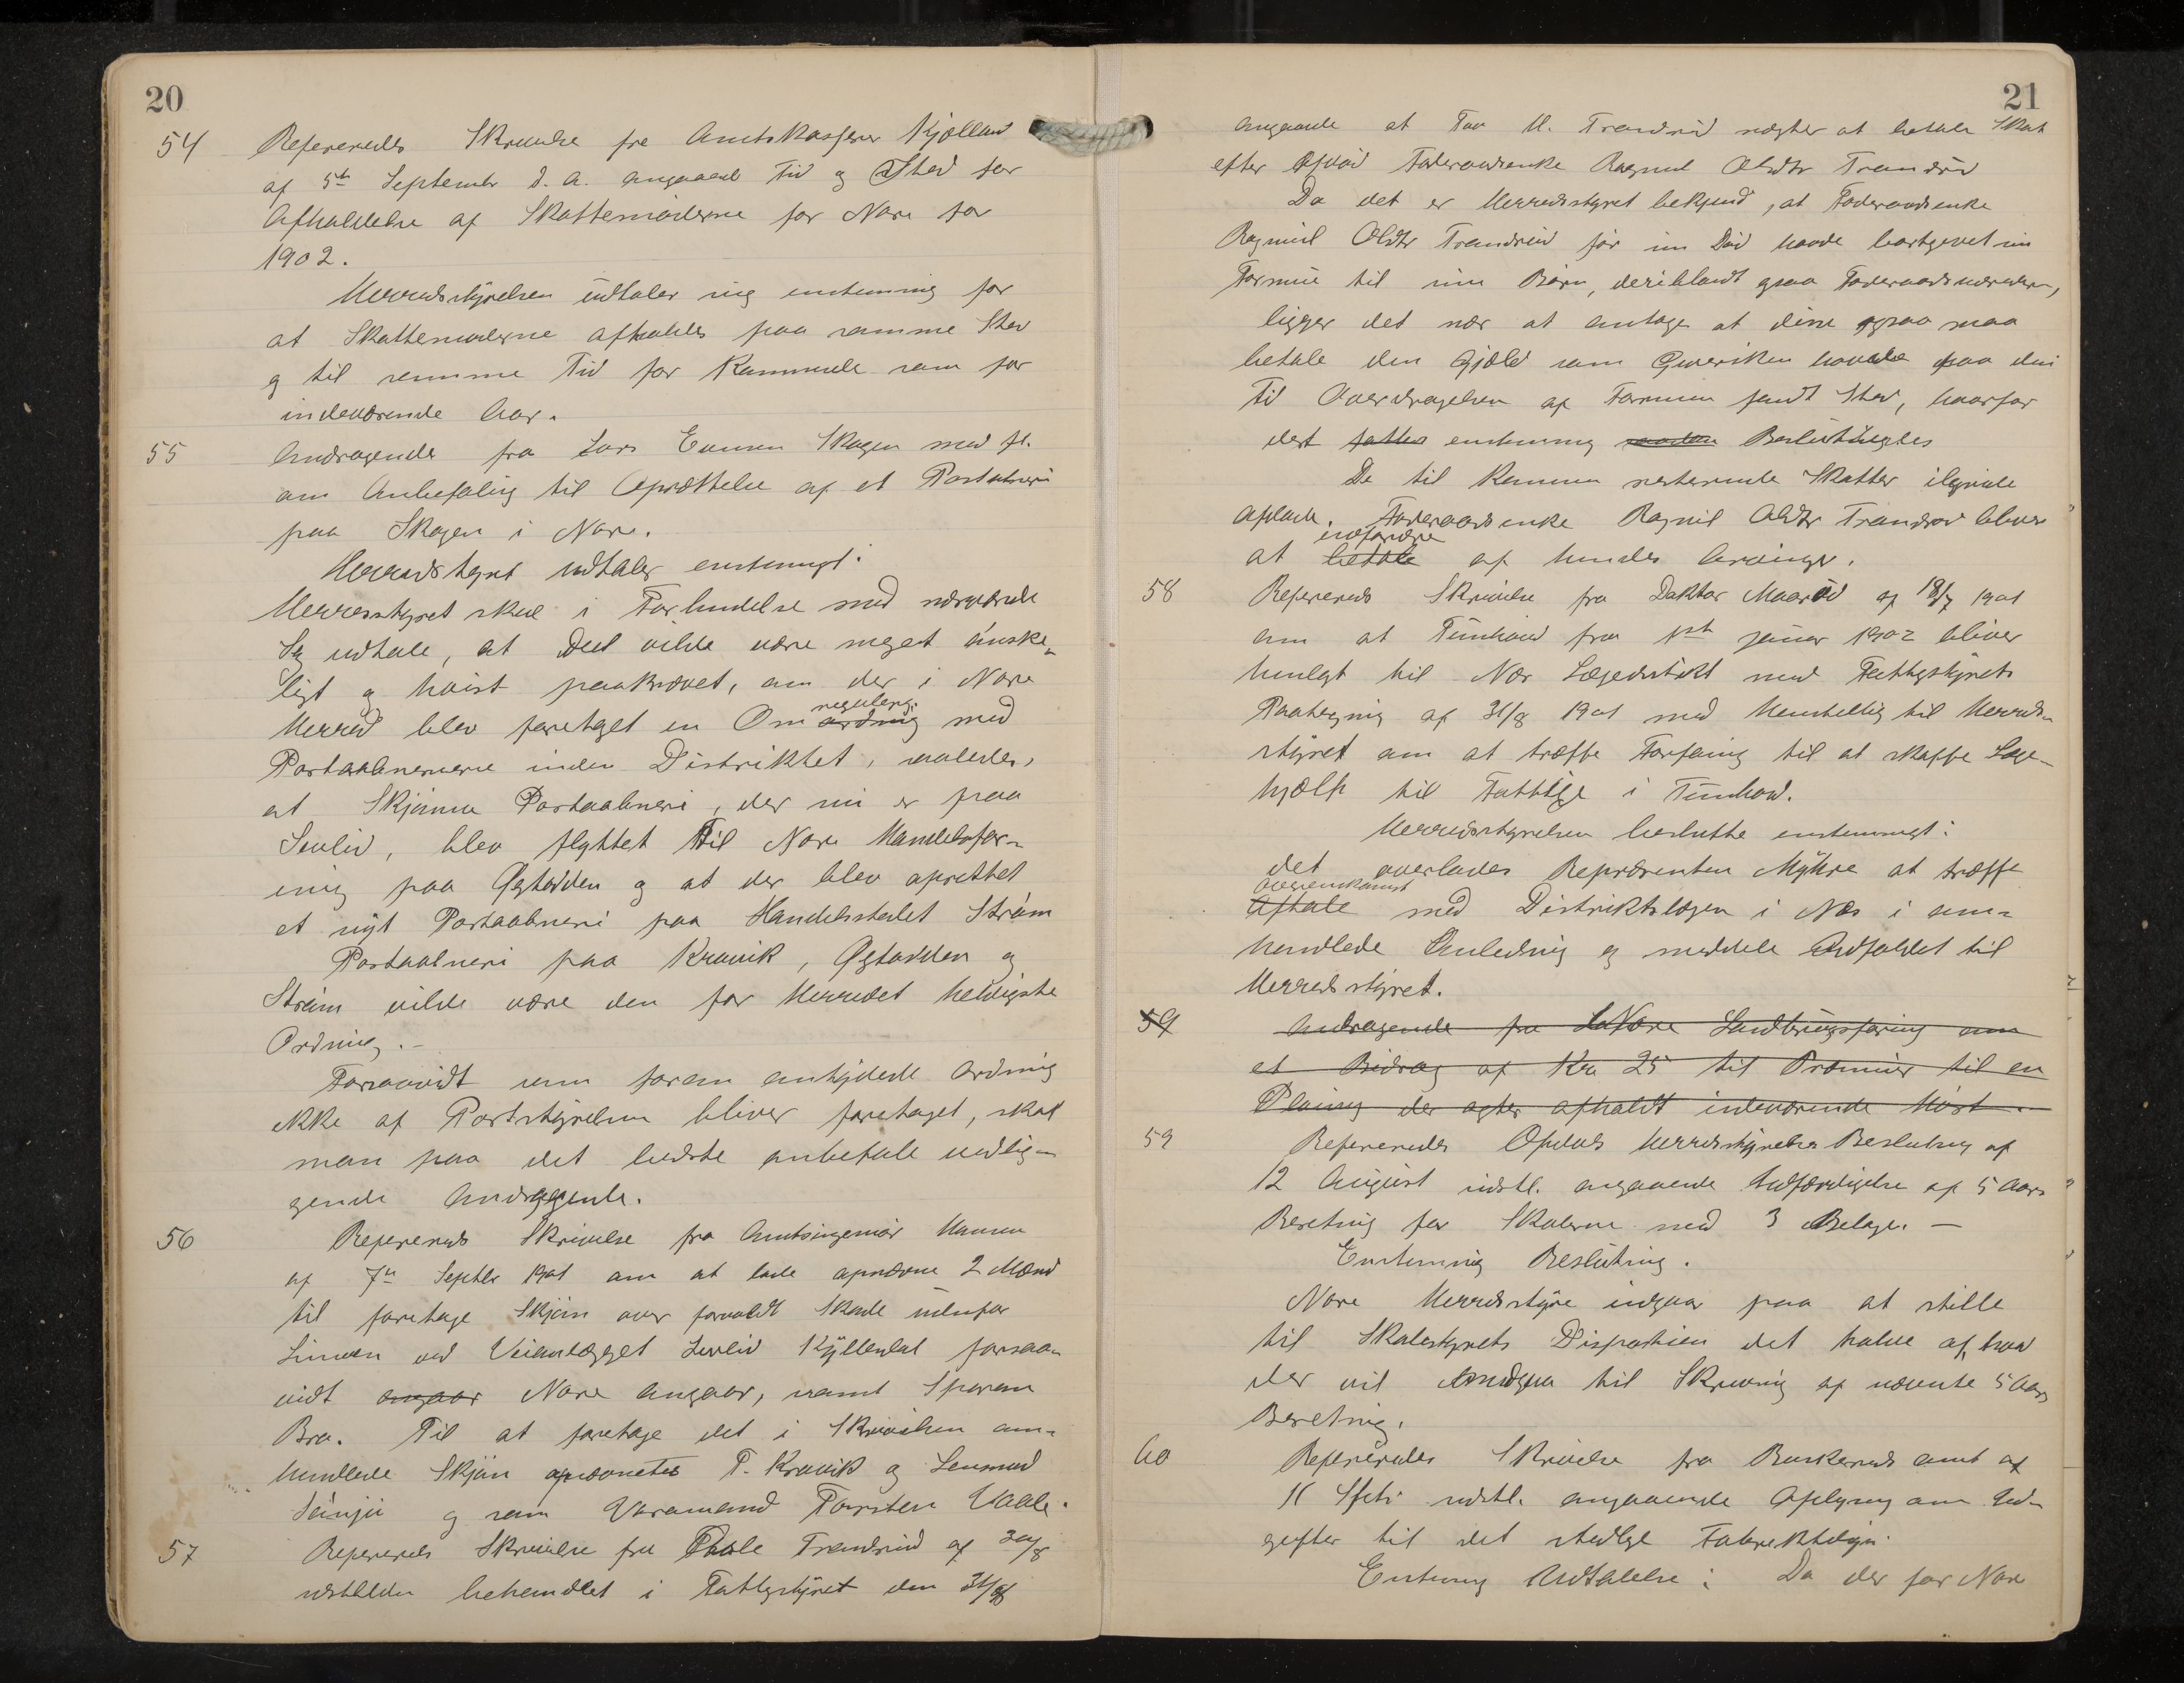 20
54 Refereredes Skrivelse fra Amtskasserer Kjelland
af 5te Septembr d. A. angaaende Tid og Sted for
Afholdelse af Skattemøderne for Nore for
1902.
Herredsstyrelsen udtaler sig enstemmig for
at Skattemøderne afholdes paa samme Sted
og til samme Tid for Kommende som for
indeværende Aar.
55 Andragende fra Lars Evensen Skogen med fl.
om Anbefaling til Oprættelse af et Postaabneri
paa Skogen i Nore.
Herredsstyret udtaler enstemmigt:
Herredsstyret skal i Forbindelse med nærværende
Sag udtale, at det vilde være meget ønske-
ligt og høist paakrævet, om der i Nore
regulerig.
Herred blev foretaget en Omordning med
Postaabnerierne inden Distriktet, saaledes,
at Skjønne Postaabneri, der nu er paa
Sevlid, blev flyttet til Nore Handelsfor-
ening paa Øgtadden og at der blev oprettet
et nyt Postaabneri paa Handelsstedet Strøm
Postaabneri paa Kravik, Øgtadden og
Strøm vilde være den for Herredet heldigste
Ordning.-
Forsaavidt som foran antydede Ordning
ikke af Poststyrelsen bliver foretaget, skal
man paa det bedste anbefale vedlig-
gende Andragende.
56 Refereredes Skrivelse fra Amtsingeniør Hansen
af 7de Septbr 1901 om at lade opnævne 2 Mænd
til foretage Skjøn over forvoldt Skade udenfor
Linien ved Veianlægget Sevlid Kyllendal forsaa-
vidt angaar Nore angaar, samt Sporan
Bro. Til at foretage det i Skrivelsen om-
handlede Skjøn opnævntes T. Kravik og Lensmand
Sønju og som Varamand Torsten Vaale.
57 Refereredes Skrivelse fra Paale Trandrud af 30/8
udstillden behandlet i Fattigstyret den 31/8
21
angaaende at Tov H. Trandrud nægter at betale Skat
efter afdød Føderaadsenke Ragnil Olsdtr Trandrud
Da det er Herredsstyret bekjend, at Føderaadsenke
Ragnil Olsdtr Trandrud før sin Død havde bortgevet sin
Formue til sine Børn, deriblandt ogsaa Føderaadsudrederen,
ligger det nær at antage at disse ogsaa maa
betale den Gjæld som Giversken havde paa den
Tid Overdragelsen af Formuen fandt Sted, hvorfor
det fattes enstemmig saadan Beslutningtes
De til Kommunen resterende Skatter ilignede
afdøde. Føderaadsenke Ragnil Olsdtr Trandrud bliver
indfordre
at betale af hendes Arvinger.
58 Refereredes Skrivelse fra Doktor Maarud af 18/7 1901
om at Tunhovd fra 1ste januar 1902 bliver
henlagt til Nes Lægedistrikt med Fattigstyrets
Paategning af 31/8 1901 med Henstilling til Herreds-
styret om at træffe Forføining til at skaffe Læge-
hjælp til Fattige i Tunhovd.
Herredsstyrelsen besluttte enstemmigt:
det overlades Repræsenten Myhre at træffe
Overenskomst
Aftale med Distriktslægen i Nes i om-
handlede Anledning og meddele Udfaldet til
Herredsstyret.
59 Andragende fra Nore Landbrugsforing om
et Bidrag af Kr 25 til Præmier til en
Pløining der agtes afholdt indeværende Høst.
59 Refereredes Opdals Herredsstyrelses Beslutning af
12 August udstl. angaaende Udfærdigelse af 5 Aars
Beretning for Skolerne med 3 Belage. —
Enstemmig Beslutning.
Nore Herredsstyre indgaar paa at stille
til Skolestyrets Disposition det halve af hvad
der vil medgaa til Skrivning af nævnte 5 Aars
Beretning.
60 Refereredes Skrivelse fra Buskeruds amt af
11 udstl. angaaende Oplysning om Ud-
gifter til det stedlige Fabriktilsyn.
Enstemmig Udtalelse: Da der for Nore